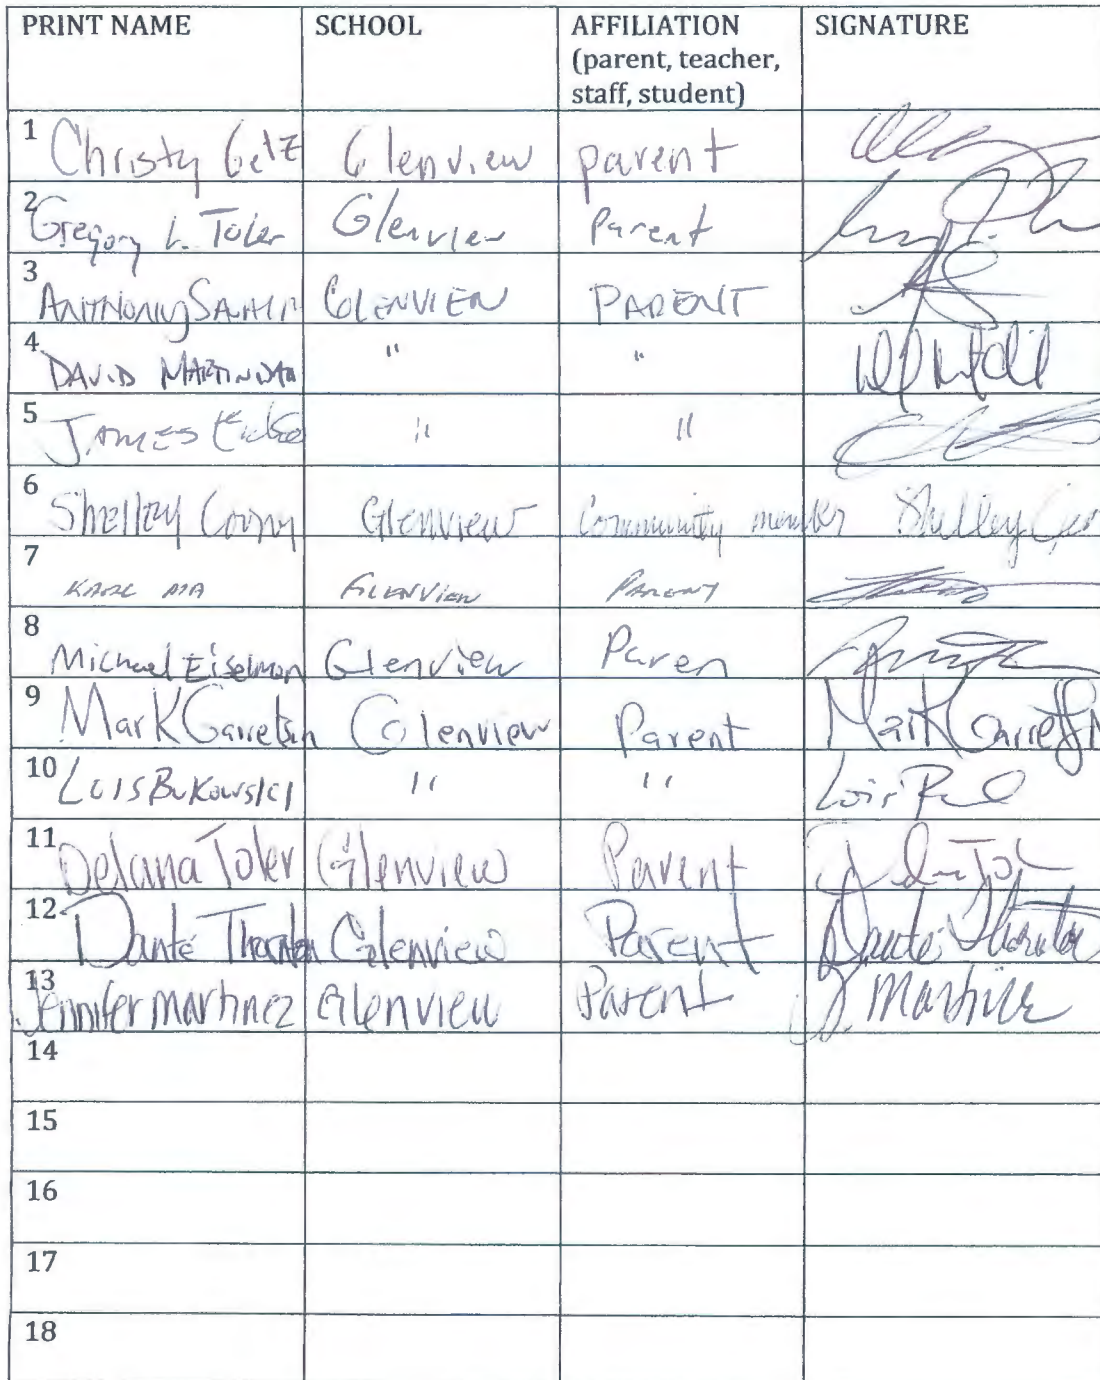 PRINT NAME SCHOOL AFFILIATION (parent, teacher, staff, student) SIGNATURE
1 Christy Getz Glenview parent
2 Gregory L. Toler Glenview Parent
3 Glenview PARENT
4 DAVID " "
5 JAMES " "
6 Shelley Glenview Community member Shelley
7 MA Glenview Parent
8 Michael Eiselman Glenview Paren
9 Mark Garretson Glenview Parent Mark
10 Lois Bukowski " " Lois
11 Delana Toler Glenview Parent
12 Danté Thornton Glenview Parent Danté Thornton
13 Jennifer martinez Glenview Parent J. Martinez
14
15
16
17
18